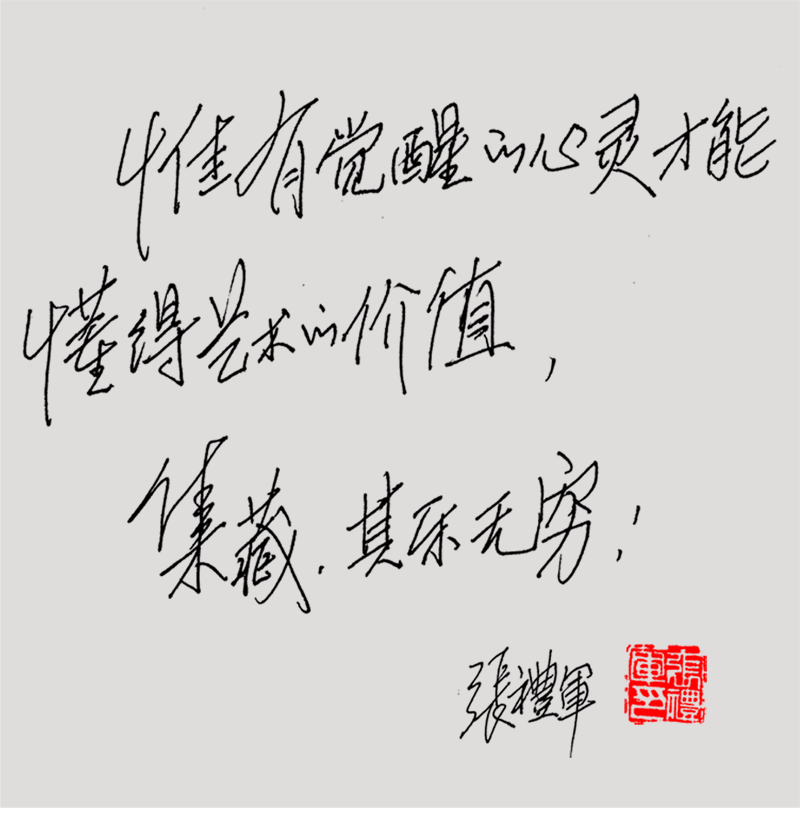 惟有觉醒的心灵才能
懂得艺术的价值，
集藏．其乐无穷！
張禮軍
張禮軍印